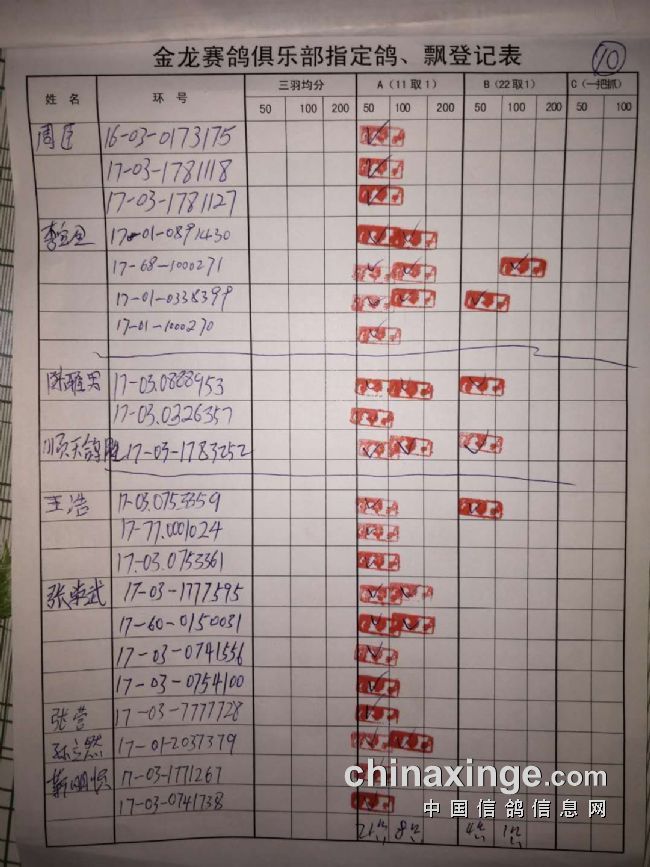 金龙赛鸽俱乐部指定鸽、飘登记表 10
姓名 环号 三羽均分 A(11取1) B(22取1) C(一把抓)
50 100 200 50 100 200 50 100 200 50 100
周臣 16-03-0173175
17-03-1781118
17-03-1781127
17-01-0891430
17-68-1000271
17-01-0338399
17-01-1000270
陈雅男 17-03.0888953
17-03.0326357
顺天鸽 17-03-1783252
王浩 17-03.0753359
17-77.0001024
17-03.0753361
张荣武 17-03-1777595
17-60-0150031
17-03-0741556
17-03-0754100
张营 17-03-7777728
孙立然 17-01-2037379
靳明 17-03-1771267
17-03-0741738
chinaxinge.com
中国信鸽信息网